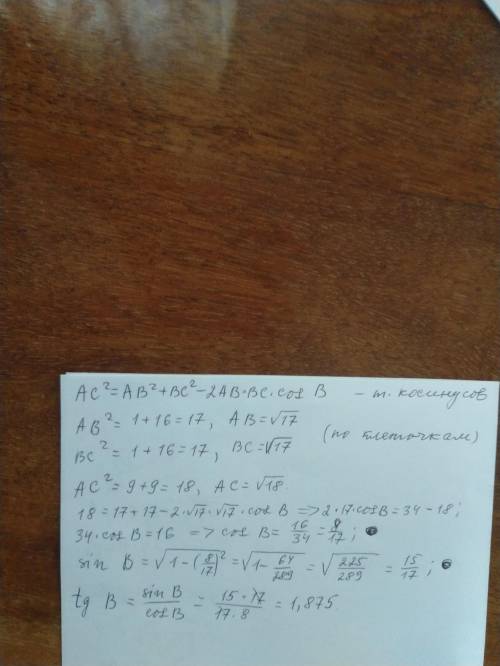 AC²=AB²+BC²-2AB·BC·cos B - т. косинусов
AB²= 1+16=17, AB=√17
BC²= 1+16=17, BC=√17 (по клеточкам)
AC²=9+9=18, AC=√18.
18=17+17-2·√17·√17·cos B => 2·17·cosB=34-18;
34·cosB=16 => cos B= 16/34=8/17;
sin B=√(1-(8/17)²)=√(1-64/289)=√(225/289)=15/17;
tg B= sinB/cosB = 15·17/17·8 = 1,875